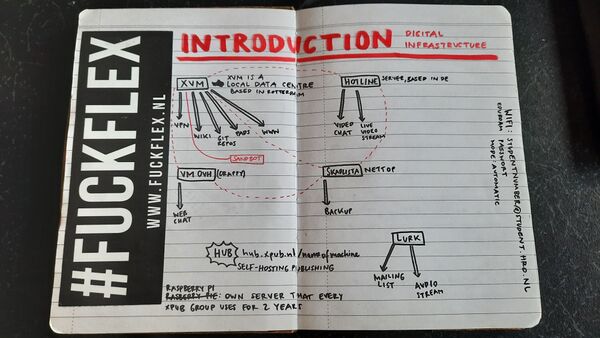 #FUCKFLEX
WWW.FUCKFLEX.NL
INTRODUCTION
DIGITAL
INFRASTRUCTURE
XVM
XVM IS A
LOCAL DATA CENTRE
BASED IN ROTTERDAM
VPN
WIKI
GIT
REPOS
PADS
WWW
SANDBOT
HOTLINE
SERVER, BASED IN DE
VIDEO
CHAT
LIVE
VIDEO
STREAM
VM OVH
(CRAPPY)
WEB
CHAT
SKABLISTA
NETTOP
BACKUP
HUB
hub.xpub.nl/name of machine
SELF-HOSTING PUBLISHING
LURK
MAILING
LIST
AUDIO
STREAM
RASPBERRY PI
RASBERRY PIE: OWN SERVER THAT EVERY
XPUB GROUP USES FOR 2 YEARS
WIFI: STUDENTNUMBER@STUDENT.HRO.NL
EDUROAM PASSWORD
MORE AUTOMATIC